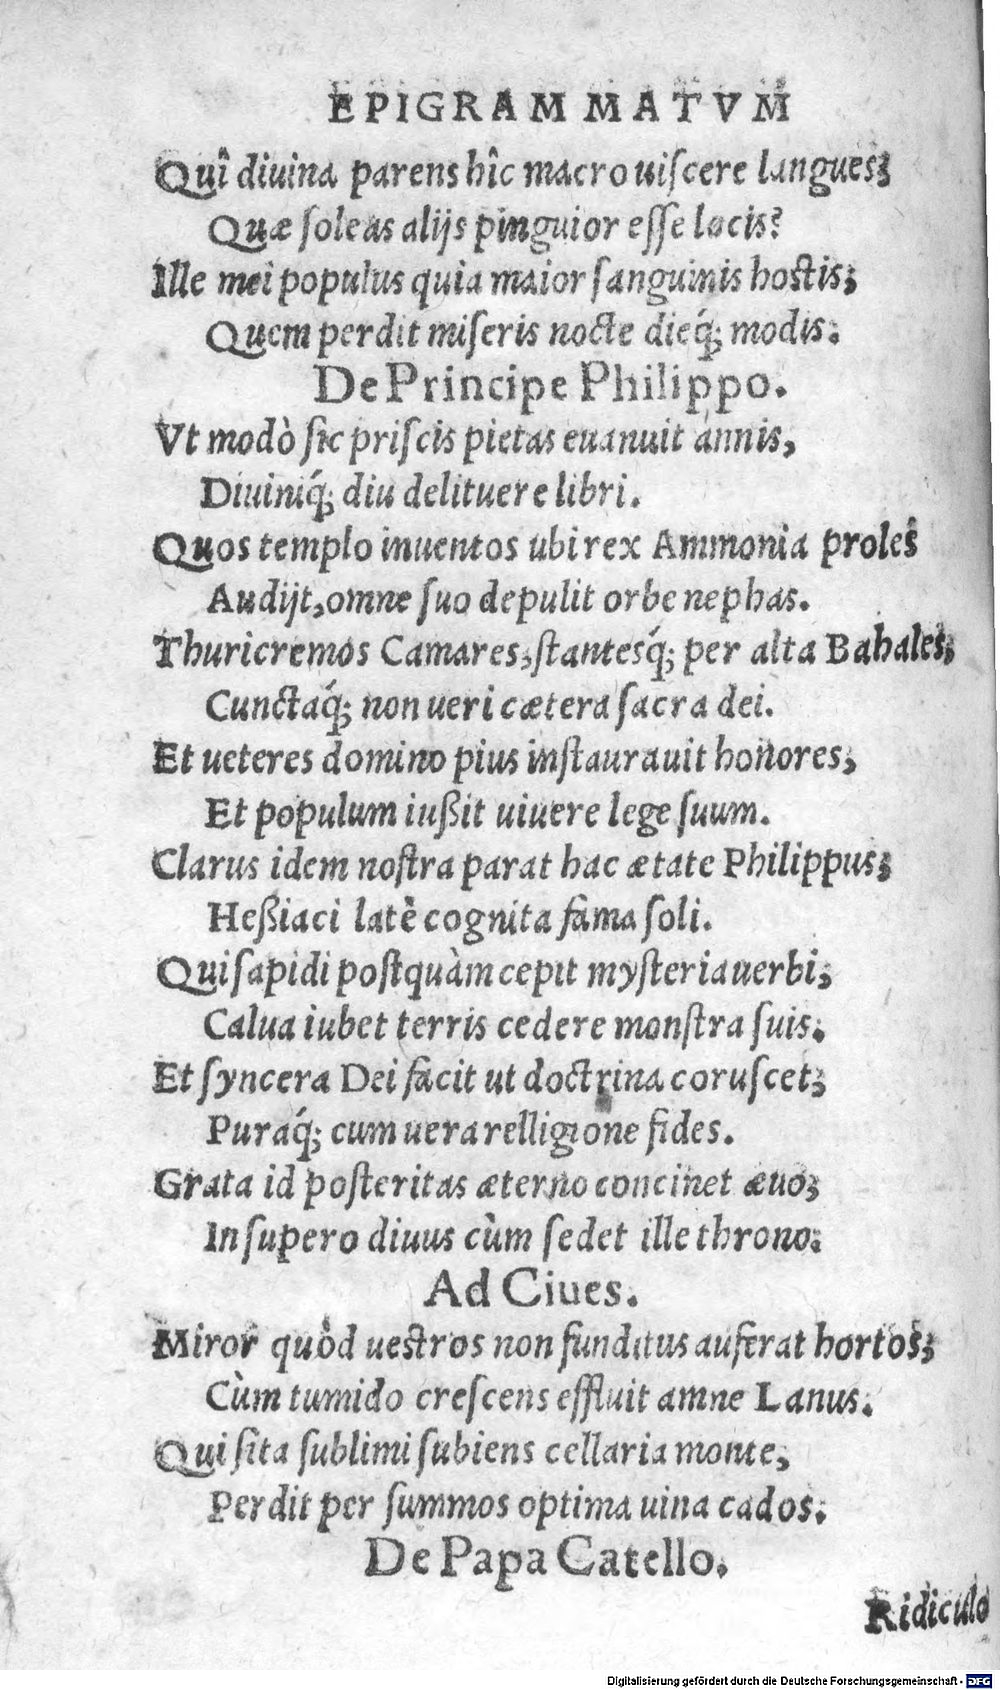 EPIGRAMMATVM
Quî diuina parens hîc macro uiſcere langues;
Quæ ſoleas alijs pinguior eſſe locis?
Ille mei populus quia maior ſanguinis hostis;
Quem perdit miſeris nocte dieq́; modis.
De Principe Philippo.
Vt modò ſic priſcis pietas euanuit annis,
Diuiniq́; diu delituere libri.
Quos templo inuentos ubi rex Ammonia proles
Audijt, omne ſuo depulit orbe nephas.
Thuricremos Camares, ſtantesq́; per alta Bahales;
Cunctaq́; non ueri cætera ſacra dei.
Et ueteres domino pius inſtaurauit honores;
Et populum iußit uiuere lege ſuum.
Clarus idem noſtra parat hac ætate Philippus;
Heßiaci latè cognita fama ſoli.
Qui ſapidi poſtquàm cepit myſteria uerbi;
Calua iubet terris cedere monſtra ſuis.
Et ſyncera Dei facit ut doctrina coruſcet;
Puraq́; cum uera relligione fides.
Grata id poſteritas æterno concinet æuo;
In ſupero diuus cùm ſedet ille throno.
Ad Ciues.
Miror quòd ueſtros non funditus auferat hortos;
Cùm tumido creſcens effluit amne Lanus.
Qui ſita ſublimi ſubiens cellaria monte,
Perdit per ſummos optima uina cados.
De Papa Catello.
Ridiculo
Digitalisierung gefördert durch die Deutsche Forschungsgemeinschaft - DFG